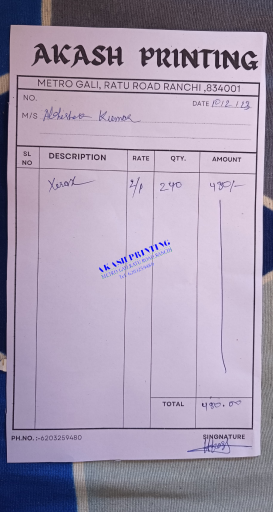 AKASH PRINTING
METRO GALI, RATU ROAD RANCHI ,834001
NO.
DATE 10/12/23
M/S Abhishek Kumar
SL NO DESCRIPTION RATE QTY. AMOUNT
Xerox 2/p 240 480/-
AKASH PRINTING
METRO GALI RATU ROAD RANCHI
TOTAL 480.00
PH.NO. :-6203259480
SINGNATURE